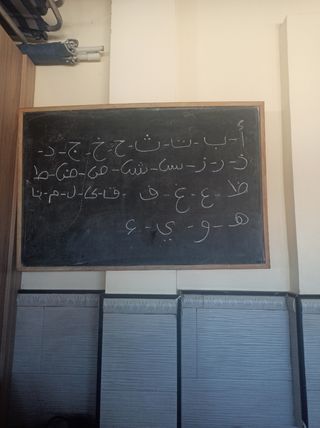 أ - ب - ت - ث - ح - خ - ج - د -
ذ - ر - ز - س - ش - ص - ض - ط
ظ - ع - غ - ف - ق - ك - ل - م - ن
هـ - و - ي - ء